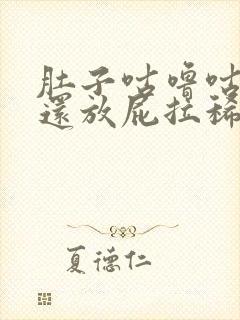 肚子咕嚕咕
還放屁拉稀
夏德仁